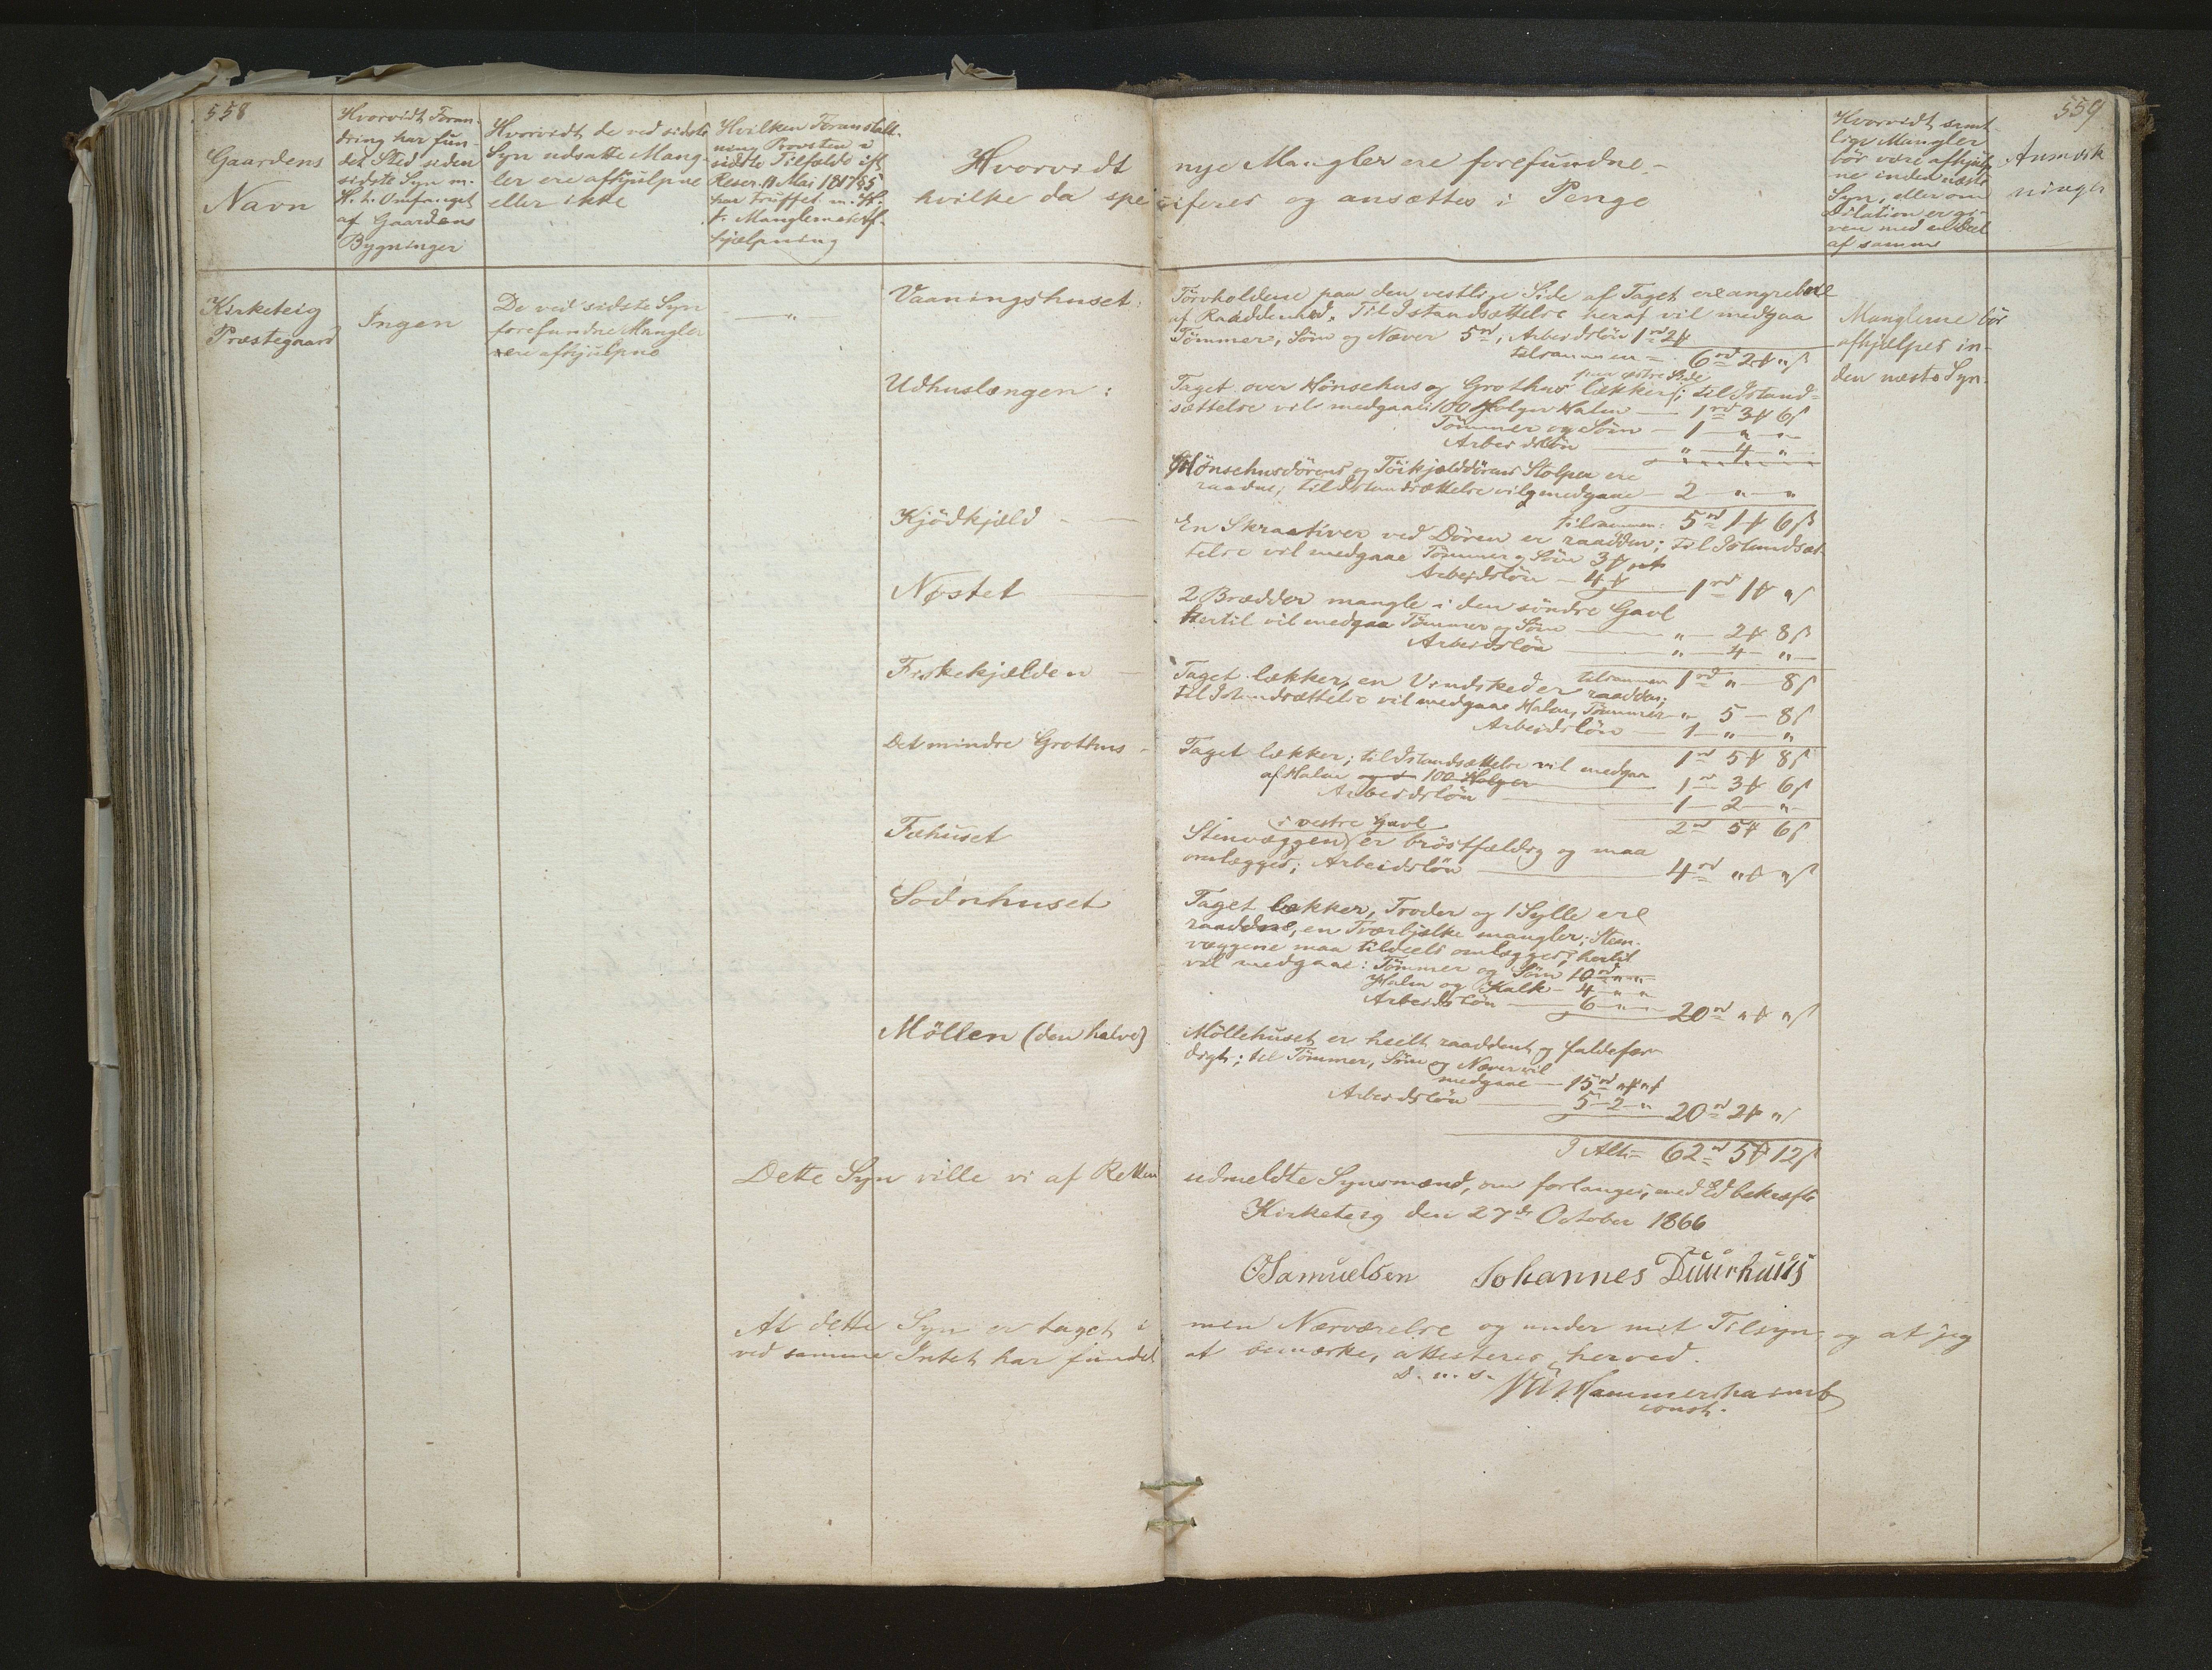 558
Gaardens
Navn
Hvorvidt Foran-
dring har fun-
det Sted siden
sidste Syn m.
H. t. Omfanget
af Gaardens
Bygninger
Hvorvidt de ved sidste
Syn udsatte Mang-
ler ere afhjulpne
eller ikke
Hvilken Foranstalt-
ning Provsten i
sidste Tilfælde ifl.
Rescr. Mai 1817 § 5
har truffet m. H.
t. Manglernes Af-
hjælpning
Hvorvidt nye Mangler ere forefundne,-
hvilke da specificeres og ansættes i Penge
Hvorvidt samt-
lige Mangler
bör være afhjulp-
ne inden næste
Syn, eller om
Dilation er gi-
ven med en Deel
af samme
559
Anmærk
ninger
Kirketeig
Præstegaard
Ingen
De ved sidste Syn
forefundne Mangler
ere afhjulpne
— " —
Vaaningshuset:
Törvholdene paa den vestlige Side af Taget ere angrebne
af Raaddenhed. Til Istandsættelse heraf vil medgaa
Tömmer, Söm og Næver 5 rd, Arbeidslön 1 rd 2 ₶
tilsammen = 6 rd 2 ₶ " ß
Manglerne bör
afhjælpes in-
den næste Syn.
Udhuslængen:
paa østre Side
Taget over Hönsehus og Grothus lækker; til Istand-
sættelse vil medgaae 100 Holger Halm — 1 rd 3 ₶ 6 ß
Tömmer og Söm — 1 — " — "
Arbeidslön — " — 4 — "
Hönsehusdörens og Töikjælddörens Stolper ere
raadne; til Istandsættelse vil medgaae — 2 — " — "
tilsammen: 5 rd 1 ₶ 6 ß
Kjödkjæld
En Skraastiver ved Dören er raadden; til Istandsæt-
telse vil medgaae Tömmer og Söm 3 ₶
Arbeidslön — 4 ₶ — 1 rd 1 ₶ " ß
Nøstet
2 Brædder mangle i den söndre Gavl
hertil vil medgaa Tömmer og Söm — " — 2 ₶ 8 ß
Arbeidslön — " — 4 — "
tilsammen 1 rd " — 8 ß
Fiskekjælden
Taget lækker, en Vindskeder raadden;
til Istandsættelse vil medgaae Halm, Tömmer — " 5 — 8 ß
Arbeidslön — 1 — " — "
1 rd 5 ₶ 8 ß
Det mindre Grothus
Taget lækker; til Istandsættelse vil medgaa
af Halm 100 Holger — 1 rd 3 ₶ 6 ß
Arbeidslön — 1 — 2 — "
2 rd 5 ₶ 6 ß
Fæhuset
i vestre Gavl
Stenvæggen er bröstfældig og maa
omlægges; Arbeidslön — 4 rd " ₶ " ß
Sodnhuset
Taget lækker, Troder og 1 Sylle ere
raaddne, en Tværbjelke mangler; Steen-
væggene maa tildeels omlægges; hertil
vil medgaae: Tömmer og Söm 10 rd " "
Halm og Kalk — 4 " "
Arbeidslön — 6 — " — 20 rd " ₶ " ß
Möllen (den halve)
Möllehuset er heelt raaddent og faldefær-
digt; til Tömmer, Söm og Næver vil
medgaae — 15 rd " ₶ " ß
Arbeidslön — 5 — 2 — " — 20 rd 2 ₶ " ß
I Alt = 62 rd 5 ₶ 12 ß
Dette Syn ville vi af Retten udmeldte Synsmænd, om forlanges, med Ed bekræfte
Kirketeig den 27de October 1866
OSamuelsen Johannes Duurhuus
At dette Syn er taget i min Nærværelse og under mit Tilsyn, og at jeg
ved samme Intet har fundet at bemærke, attesteres herved.
D. u. s.
VUHammershaimb
const.